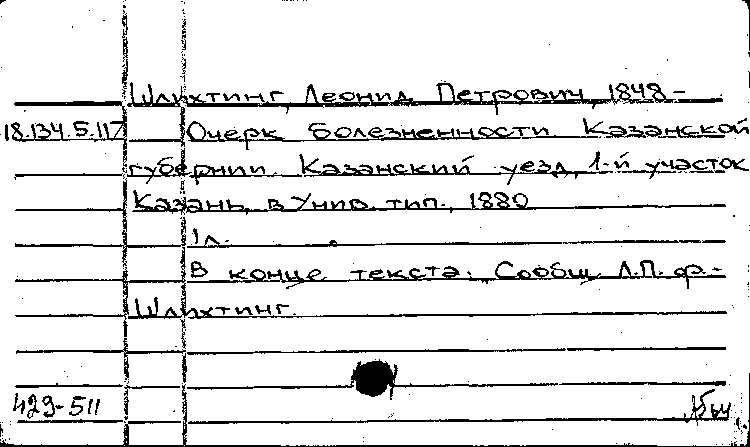 Шлихтинг, Леонид Петрович, 1848-
18.134.5.117 Очерк болезненности Казанской
губернии. Казанский уезд, 1-й участок
Казань, в Унив. тип., 1880
1л.
В конце текста: Сообщ. Л.П. ф.-
Шлихтинг.
429-511